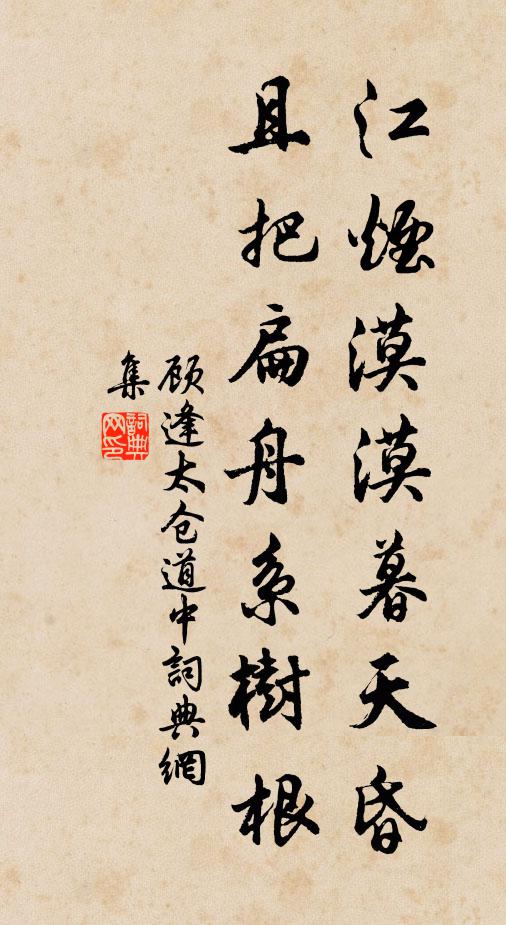 江煙漠漠暮天昏
且把扁舟系樹根
顾逢太仓道中詞典網
集
詞典
网印